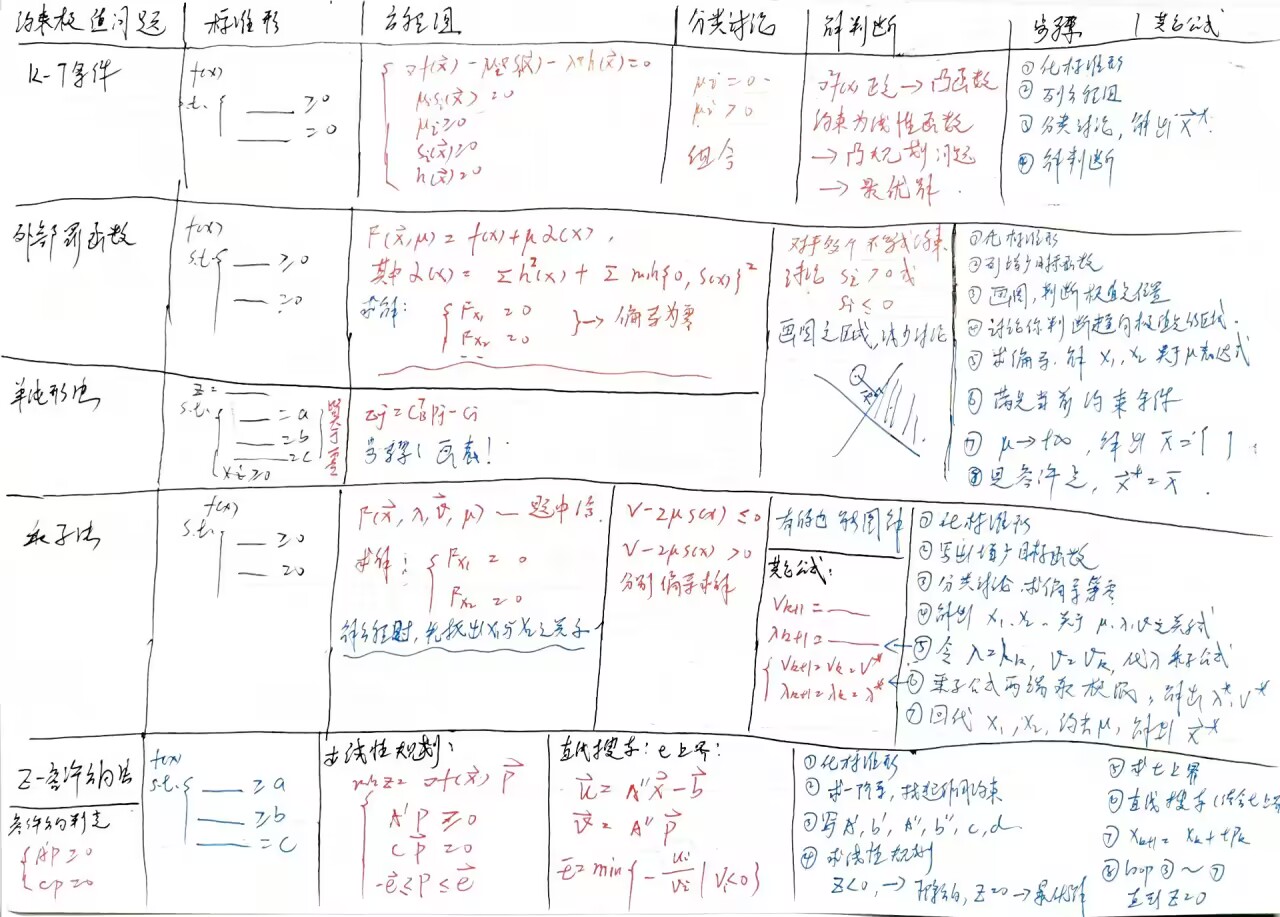 约束极值问题 标准形 方程组 分类讨论 解判断 步骤 其它公式
K-T条件
f(x)
s.t. { ≥0
=0
∇f(x⃗) - μ∇S(x⃗) - λ∇h(x⃗)=0
μᵢsᵢ(x⃗)=0
μᵢ≥0
Sᵢ(x⃗)≥0
h(x⃗)=0
μᵢ=0
μᵢ>0
组合
∇²f(x)正定→凸函数
约束为线性函数
→凸规划问题
→最优解.
①化标准形
②列方程组
③分类讨论,解出x⃗*.
④解判断
外部罚函数
f(x)
s.t. { ≥0
=0
F(x⃗,μ)=f(x)+μα(x),
其中α(x)= Σh²(x)+Σ min{0,S(x)}²
求解:
{ Fx₁=0
Fx₂=0 }→偏导为零
对于每个不等式约束
讨论 Sᵢ>0或
Sᵢ≤0
画图定区域,减少讨论
①化标准形
②列增广目标函数
③画图,判断极值点位置
④讨论你判断趋向极值点的区域.
⑤求偏导.解x₁,x₂关于μ表达式
⑥满足当前约束条件
⑦μ→+∞,解出x̄=[ ]
⑧是条件定,x⃗*=x̄.
单纯形法
Z=
s.t. { =a
=b
=c
xᵢ≥0
大于零
Zj=C_BᵀPj-Cj
步骤:画表!
乘子法
f(x)
s.t. { ≥0
=0
F(x⃗,λ,v⃗,μ)—题中给.
求解: { Fx₁=0
Fx₂=0
解方程时,先找出x₁与x₂之关系
v-2μs(x)≤0
v-2μs(x)>0
分别偏导求解
有的也能图解
其它公式:
Vk+1=
λk+1=
{ Vk+1=Vk=V*
λk+1=λk=λ*
①化标准形
②写出增广目标函数
③分类讨论.求偏导等零
④解出x₁.x₂.关于μ.λ.v之关系式
⑤令λ=λk,v=vk,代入乘子公式
⑥乘子公式两端取极限,解出λ*,v*
⑦回代x₁,x₂,约去μ,解到x⃗*
Z-容许方向法
容许方向判定
{ A'P≥0
CP=0
f(x)
s.t. { ≥a
≥b
=c
求线性规划:
min Z=∇f(x⃗)P⃗
{ A'P≥0
CP⃗=0
-e⃗≤P≤e⃗
直线搜索:t上界
u⃗=A''x⃗-b⃗
v⃗=A''P⃗
t̄=min{-uᵢ/vᵢ|Vᵢ<0}
①化标准形
②求一阶导,找起作用约束
③写A',b',A'',b'',c,d
④求线性规划
Z<0,→下降方向,Z=0→最优解
⑤求t上界
⑥直线搜索(结合t上界
⑦xk+1=xk+tPk
⑧loop③~⑦
直到Z=0